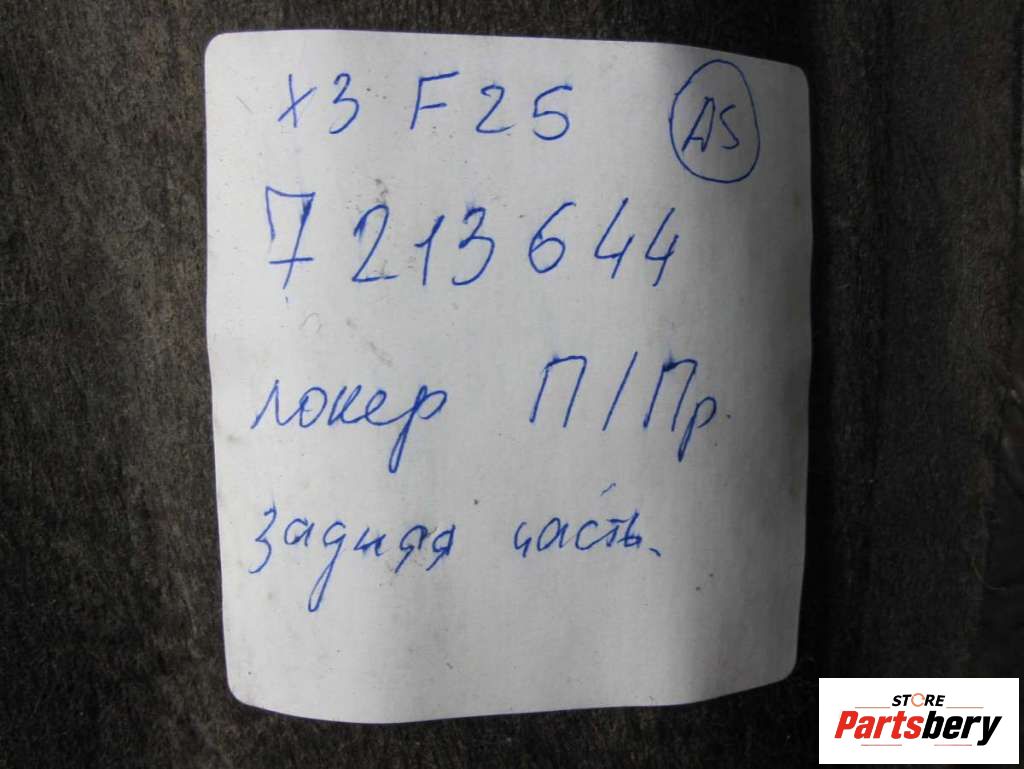 X3 F25 AS
7213644
локер П/Пр.
задняя часть.
STORE
Partsbery